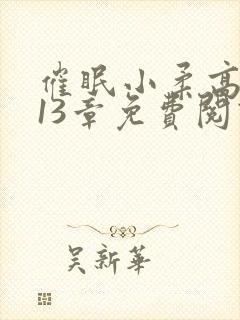 催眠小柔高
13章免費閱
吳新華